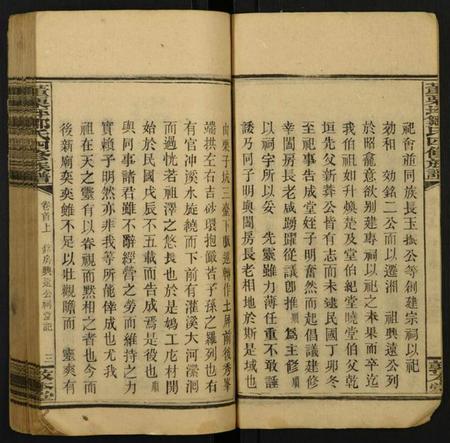 祀會前同族長玉振公等創建宗祠以祀
勉和 効銘二公而以遷湘 祖興遠公列
於昭龕意欲別建專祠以祀之未果而卒迄
我伯祖如升煥楚及堂伯紀堂曉堂伯父乾
恆先父新葬公皆有志而未逮民國丁卯冬
至祀事告成堂姪子明奮然而起倡議建修
祠宇房長老咸踴躍從議即推 順 爲主修 順
以祠字所以妥 先靈雖力薄任重不敢諉
諉乃同子明與闔房長老相地於斯是域也
由栗子坑三臺下脈逶轉作土屏前後秀峯
端拱左右吉砂環抱儼若子孫之羅列也右
有官冲溪水旋繞而下前有灌溪大河潆洄
而過恍若祖澤之悠長也於是鳩工庀材開
始於民國戊辰不五載而告成焉是役也 順
與同事諸君雖不辭經營之勞而維持之力
實賴予明然亦非我等所能倖成也尤我
祖在天之靈有以眷視而默相之者也今而
後新廟奕奕雖不足以壯觀瞻而 靈爽有
卷首上
房興遠公祠堂記
三
氏四修族譜